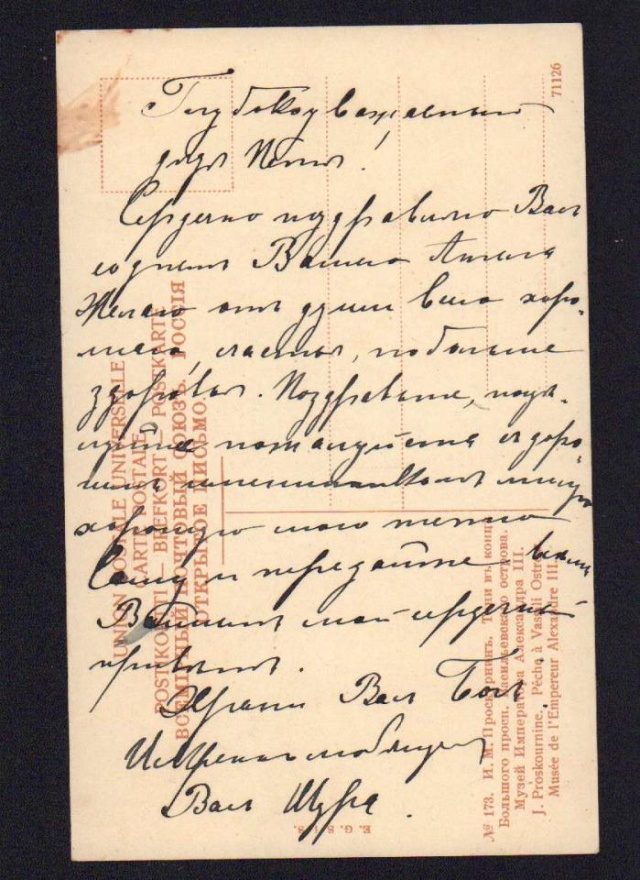 Глубокоуважаемый
дядя Петя!
Сердечно поздравляю Васъ
со днемъ Вашего Ангела
Желаю отъ души всего хоро-
шаго, счастья, побольше
здоровья. Поздравьте,
пожалуйста съ доро-
гимъ именинникомъ милую
хорошую мою тетю
Сашу и передайте всемъ
Вашимъ мой сердечный
приветъ.
Храни Васъ Богъ
Искренно любящій
Васъ Шура.
UNION POSTALE UNIVERSELLE
CARTE POSTALE
POSTIKORTTI — BREFKORT — POSTKARTE
ВСЕМІРНЫЙ ПОЧТОВЫЙ СОЮЗЪ. РОССІЯ
ОТКРЫТОЕ ПИСЬМО.
№ 173. И. М. Проскурнинъ. Тони въ концѣ
Большого просп. Васильевскаго острова.
Музей Императора Александра III.
J. Proskournine. Pêche à Vassili Ostroff
Musée de l'Empereur Alexandre III.
71126